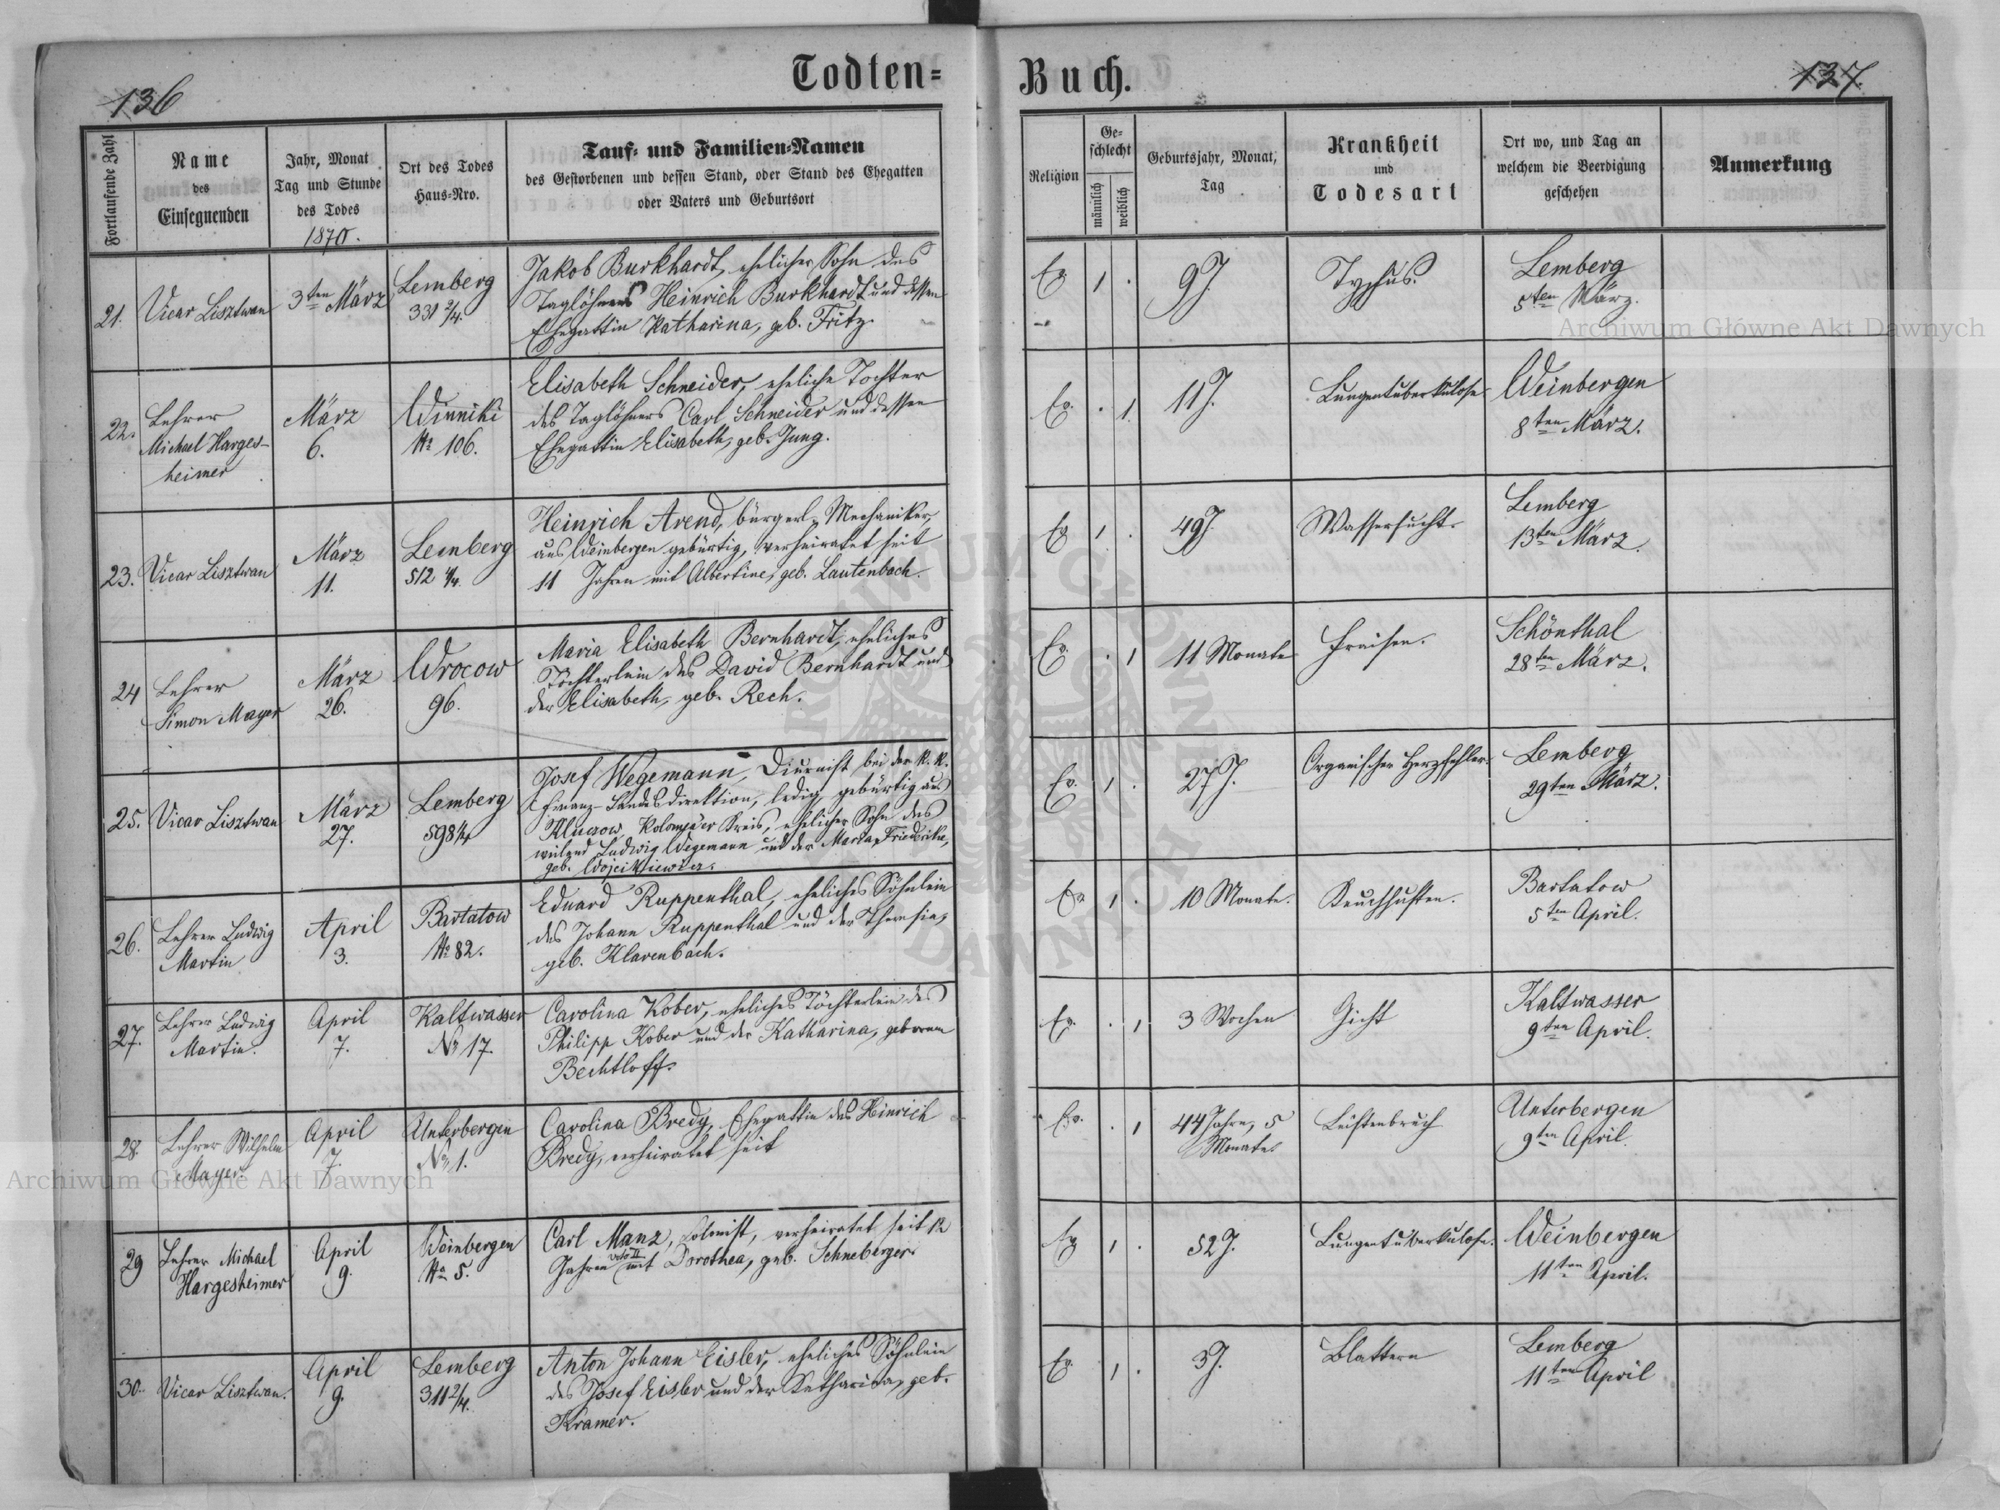 136
Todten=
Fortlaufende Zahl
Name
des
Einsegnenden
Jahr, Monat
Tag und Stunde
des Todes
1870.
Ort des Todes
Haus=Nro.
Tauf= und Familien=Namen
des Gestorbenen und dessen Stand, oder Stand des Ehegatten
oder Vaters und Geburtsort
21.
Vicar Lisztwan
3ten März
Lemberg
331 2/4.
Jakob Burkhardt, ehelicher Sohn des
Taglöhners Heinrich Burkhardt und dessen
Ehegattin Katharina, geb. Fritz.
22.
Lehrer
Michael Harges-
heimer
März
6.
Winniki
No 106.
Elisabeth Schneider, eheliche Tochter
des Taglöhners Carl Schneider und dessen
Ehegattin Elisabeth, geb. Jung.
23.
Vicar Lisztwan
März
11.
Lemberg
512 4/4.
Heinrich Arend, bürgerl. Mechaniker,
aus Weinbergen gebürtig, verheiratet seit
11 Jahren mit Albertine, geb. Lautenbach.
24
Lehrer
Simon Mayer
März
26.
Wrocow
96.
Maria Elisabeth Bernhardt, eheliches
Töchterlein des David Bernhardt und
der Elisabeth, geb. Rech.
25.
Vicar Lisztwan
März
27.
Lemberg
598
Josef Wegemann, Diurnist bei der k. k.
Finanz-Landesdirektion, ledig, gebürtig aus
Kolomyaer Kreis, ehelicher Sohn des
weiland Ludwig Wegemann und der Friederike,
geb.
26.
Lehrer Ludwig
Martin
April
3.
Bartatow
No 82.
Eduard Ruppenthal, eheliches Söhnlein
des Johann Ruppenthal und der Theresia,
geb. Klarenbach.
27.
Lehrer Ludwig
Martin.
April
7.
Kaltwasser
No 17.
Carolina Kober, eheliches Töchterlein des
Philipp Kober und der Katharina, geborene
Bechtloff.
28.
Lehrer Wilhelm
Mayer.
April
7.
Unterbergen
No 1.
Carolina Bredy, Ehegattin des Heinrich
Bredy, verheiratet seit
29
Lehrer Michael
Hargesheimer
April
9.
Weinbergen
No 5.
Carl Manz, Colonist, verheiratet seit 12
Jahren mit Dorothea, geb. Schneberger.
30.
Vicar Lisztwan.
April
9.
Lemberg
311 2/4.
Anton Johann Eisler, eheliches Söhnlein
des Josef Eisler und der Katharina, geb.
Kramer.
Buch.
137.
Religion
Ge=
schlecht
männlich
weiblich
Geburtsjahr, Monat,
Tag
Krankheit
und
Todesart
Ort wo, und Tag an
welchem die Beerdigung
geschehen
Anmerkung
Ev.
1
.
9 J.
Typhus.
Lemberg
5ten März.
Ev.
.
1
11 J.
Lungentuberkulose
Weinbergen
8ten März.
Ev.
1
.
49 J.
Wassersucht.
Lemberg
13ten März.
Ev.
.
1
11 Monate
Fraisen.
Schönthal
28ten März.
Ev.
1
.
27 J.
Organischer Herzfehler.
Lemberg
29ten März.
Ev.
1
.
10 Monate.
Keuchhusten.
Bartatow
5ten April.
Ev.
.
1
3 Wochen
Gicht
Kaltwasser
9ten April.
Ev.
.
1
44 Jahre, 5
Monate
Unterbergen
9ten April.
Ev.
1
.
52 J.
Lungentuberkulose.
Weinbergen
11ten April.
Ev.
1
.
3 J.
Blattern
Lemberg
11ten April
Archiwum Główne Akt Dawnych
Archiwum Główne Akt Dawnych
ARCHIWUM GŁÓWNE AKT DAWNYCH